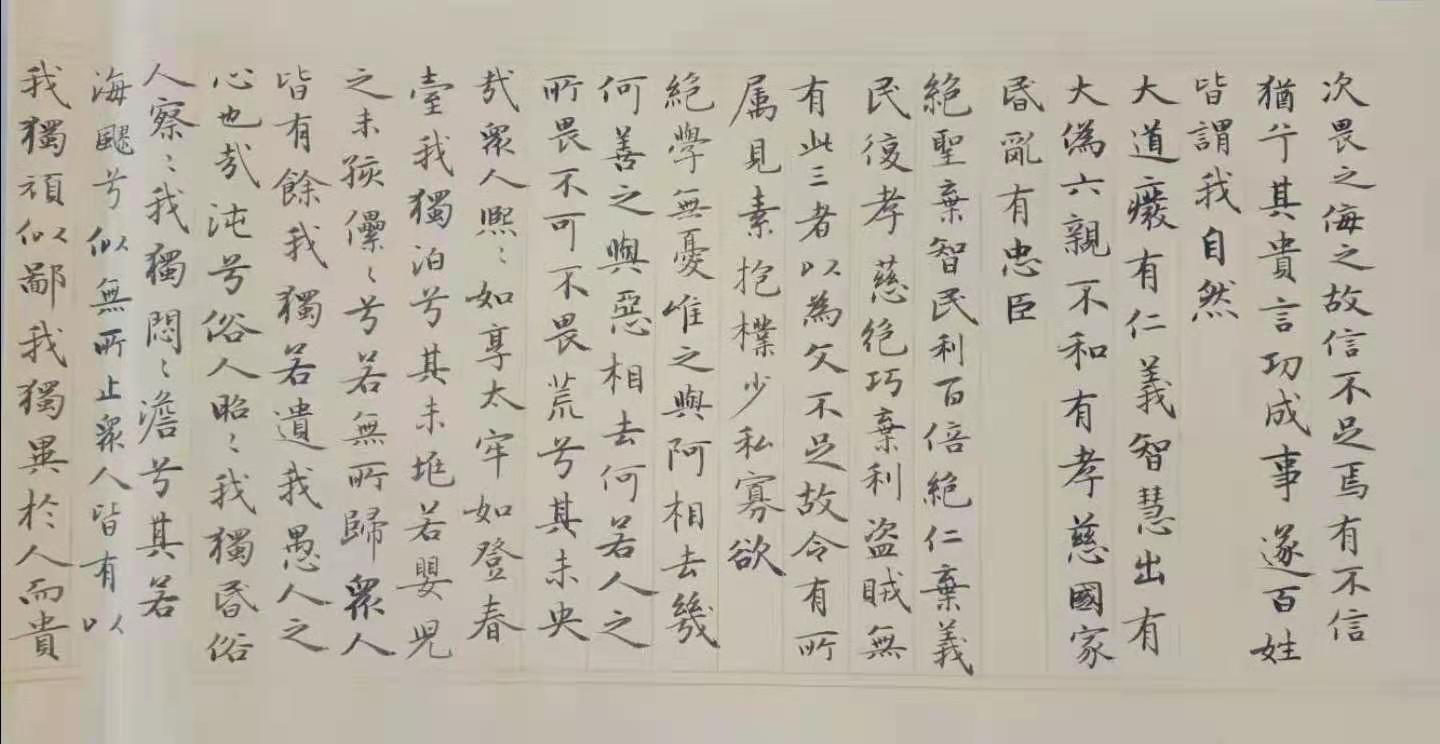 次畏之侮之故信不足焉有不信
猶兮其貴言功成事遂百姓
皆謂我自然
大道廢有仁義智慧出有
大偽六親不和有孝慈國家
昬亂有忠臣
絕聖棄智民利百倍絕仁棄義
民復孝慈絕巧棄利盜賊無
有此三者以為文不足故令有所
属見素抱樸少私寡欲
絕學無憂唯之與阿相去幾
何善之與惡相去何若人之
所畏不可不畏荒兮其未央
哉眾人熙〻如享太牢如登春
臺我獨泊兮其未兆若嬰兒
之未孩儽〻兮若無所歸眾人
皆有餘我獨若遺我愚人之
心也哉沌兮俗人昭〻我獨昬俗
人察〻我獨悶〻澹兮其若
海飂兮似無所止眾人皆有以
我獨頑似鄙我獨異於人而貴